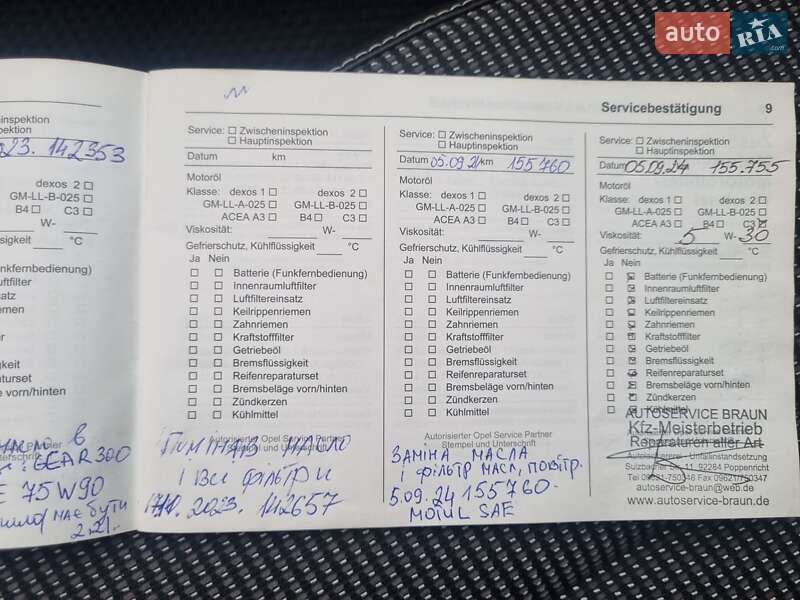 auto RIA
.com
Servicebestätigung 9
nspektion
pektion
23. 142353
dexos 2
GM-LL-B-025
B4 C3
W-
üssigkeit °C
nbedienung)
lfilter
satz
emen
n
er
gkeit
rset
n/hinten
Partner
erschrift
масло в
GEAR300
75W90
має бути
2.21.
Service: Zwischeninspektion
Hauptinspektion
Datum km
Motoröl
Klasse: dexos 1 dexos 2
GM-LL-A-025 GM-LL-B-025
ACEA A3 B4 C3
Viskosität: W-
Gefrierschutz, Kühlflüssigkeit °C
Ja Nein
Batterie (Funkfernbedienung)
Innenraumluftfilter
Luftfiltereinsatz
Keilrippenriemen
Zahnriemen
Kraftstofffilter
Getriebeöl
Bremsflüssigkeit
Reifenreparaturset
Bremsbeläge vorn/hinten
Zündkerzen
Kühlmittel
Autorisierter Opel Service Partner
Stempel und Unterschrift
масло
і всі фільтри
2023. 142657
Service: Zwischeninspektion
Hauptinspektion
Datum 05.09.24 km 155760
Motoröl
Klasse: dexos 1 dexos 2
GM-LL-A-025 GM-LL-B-025
ACEA A3 B4 C3
Viskosität: W-
Gefrierschutz, Kühlflüssigkeit °C
Ja Nein
Batterie (Funkfernbedienung)
Innenraumluftfilter
Luftfiltereinsatz
Keilrippenriemen
Zahnriemen
Kraftstofffilter
Getriebeöl
Bremsflüssigkeit
Reifenreparaturset
Bremsbeläge vorn/hinten
Zündkerzen
Kühlmittel
Autorisierter Opel Service Partner
Stempel und Unterschrift
ЗАМІНА МАСЛА
І ФІЛЬТР МАСЛ, ПОВІТР.
5.09.24 155760.
MOTUL SAE
Service: Zwischeninspektion
Hauptinspektion
Datum 05.09.24 155.755
Motoröl
Klasse: dexos 1 dexos 2
GM-LL-A-025 GM-LL-B-025
ACEA A3 B4 C3
Viskosität: 5 W- 30
Gefrierschutz, Kühlflüssigkeit °C
Ja Nein
Batterie (Funkfernbedienung)
Innenraumluftfilter
Luftfiltereinsatz
Keilrippenriemen
Zahnriemen
Kraftstofffilter
Getriebeöl
Bremsflüssigkeit
Reifenreparaturset
Bremsbeläge vorn/hinten
Zündkerzen
Kühlmittel
AUTOSERVICE BRAUN
Kfz-Meisterbetrieb
Reparaturen aller Art
Autolackiererei - Unfallinstandsetzung
Sulzbacher Str. 11, 92284 Poppenricht
Tel 09621-750346 Fax 09621/750347
autoservice-braun@web.de
www.autoservice-braun.de